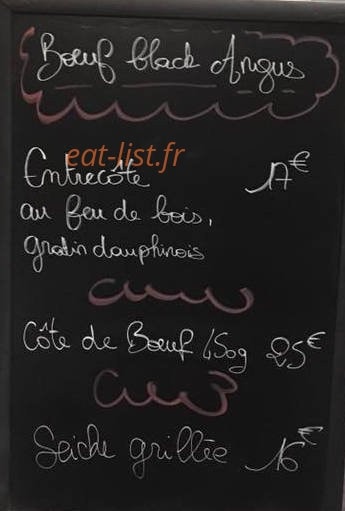 Bœuf black Angus
eat-list.fr
Entrecôte 17€
au feu de bois,
gratin dauphinois
Côte de Bœuf 450g 25€
Seiche grillée 16€